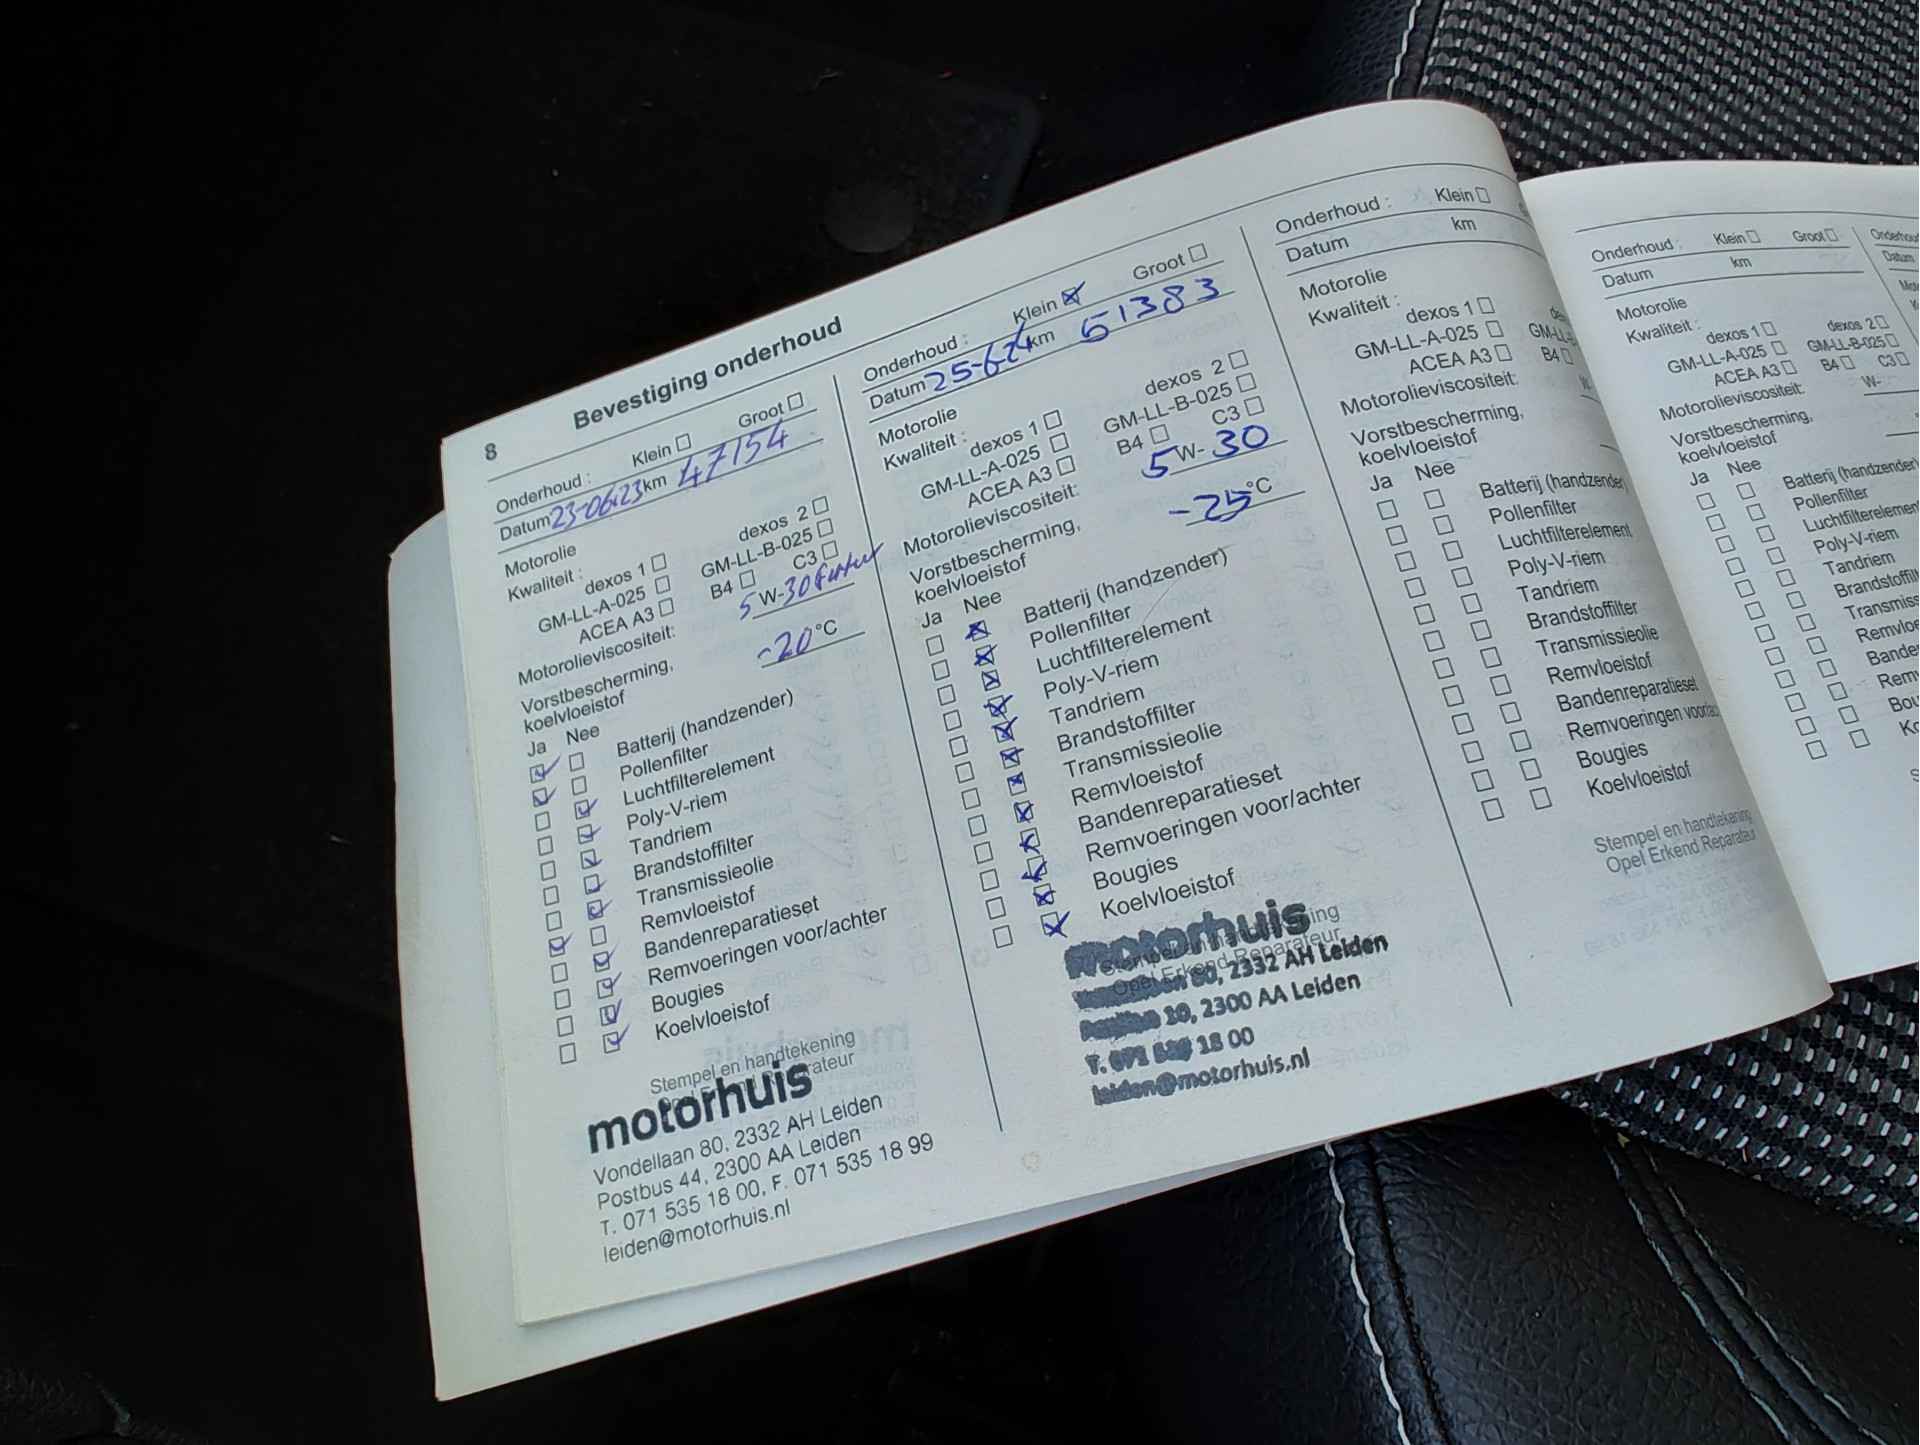 8
Bevestiging onderhoud
Onderhoud : Klein Groot
Datum 23-06-23 km 47154
Motorolie
Kwaliteit : dexos 1 dexos 2
GM-LL-A-025 GM-LL-B-025
ACEA A3 B4 C3
Motorolieviscositeit: 5 W-30
Vorstbescherming,
koelvloeistof -20°C
Ja Nee
Batterij (handzender)
Pollenfilter
Luchtfilterelement
Poly-V-riem
Tandriem
Brandstoffilter
Transmissieolie
Remvloeistof
Bandenreparatieset
Remvoeringen voor/achter
Bougies
Koelvloeistof
Stempel en handtekening
motorhuis
Vondellaan 80, 2332 AH Leiden
Postbus 44, 2300 AA Leiden
T. 071 535 18 00, F. 071 535 18 99
leiden@motorhuis.nl
Onderhoud : Klein Groot
Datum 25-6-24 km 61383
Motorolie
Kwaliteit : dexos 1 dexos 2
GM-LL-A-025 GM-LL-B-025
ACEA A3 B4 C3
Motorolieviscositeit: 5 W- 30
Vorstbescherming,
koelvloeistof -25°C
Ja Nee
Batterij (handzender)
Pollenfilter
Luchtfilterelement
Poly-V-riem
Tandriem
Brandstoffilter
Transmissieolie
Remvloeistof
Bandenreparatieset
Remvoeringen voor/achter
Bougies
Koelvloeistof
motorhuis
80, 2332 AH Leiden
10, 2300 AA Leiden
T. 071 18 00
leiden@motorhuis.nl
Onderhoud : Klein
Datum km
Motorolie
Kwaliteit : dexos 1
GM-LL-A-025
ACEA A3 B4
Motorolieviscositeit:
Vorstbescherming,
koelvloeistof
Ja Nee
Batterij (handzender)
Pollenfilter
Luchtfilterelement
Poly-V-riem
Tandriem
Brandstoffilter
Transmissieolie
Remvloeistof
Bandenreparatieset
Remvoeringen
Bougies
Koelvloeistof
Stempel en handtekening
Opel Erkend Reparateur
Onderhoud : Klein Groot
Datum km
Motorolie
Kwaliteit : dexos 1 dexos 2
GM-LL-A-025 GM-LL-B-025
ACEA A3 B4 C3
Motorolieviscositeit: W-
Vorstbescherming,
koelvloeistof
Ja Nee
Batterij (handzender)
Pollenfilter
Luchtfilterelement
Poly-V-riem
Tandriem